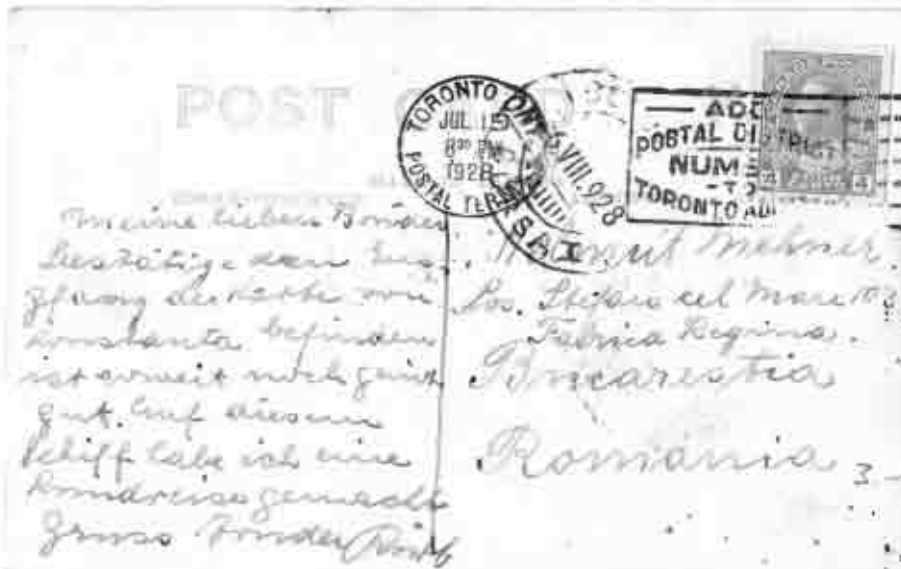 POST
TORONTO ONT
JUL 15
8 30 PM
1928
POSTAL TER
VIII.928
ADD
POSTAL DIST
NUM
TO
TORONTO AD
4 4
Meine lieben Bruder.
Bestätige den Em-
pfang der Karte von
Konstanta befinden
ist soweit noch ganz
gut. Auf diesem
Schiff habe ich eine
Rundreise gemacht
Gruss Bruder
Mehner
Sos. Stefan cel Mare
Fabrica Regina.
Bucarestia
Romania
3